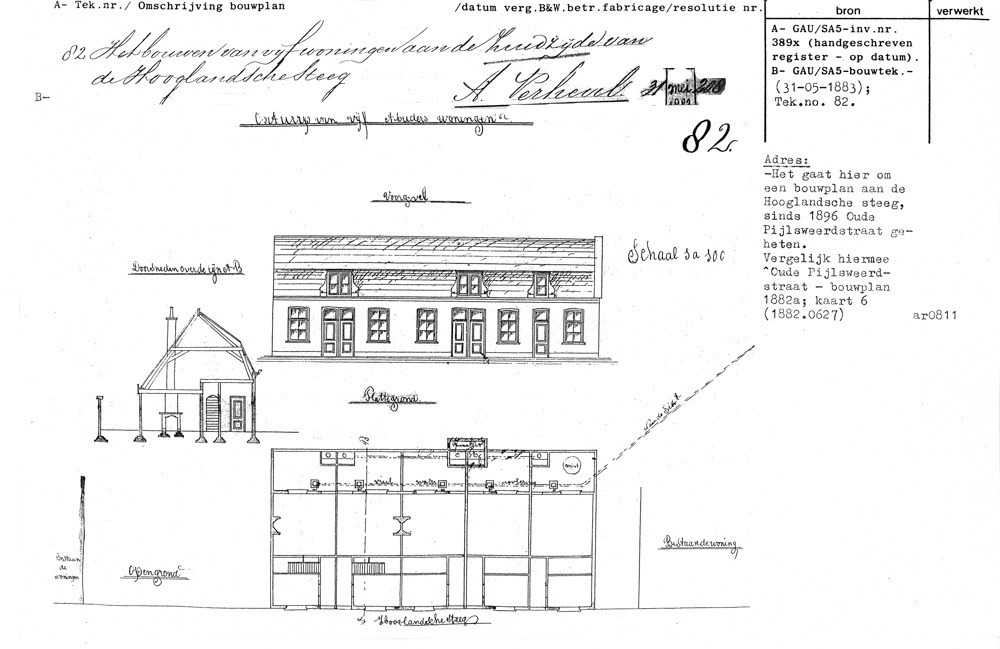 A- Tek.nr./ Omschrijving bouwplan /datum verg.B&W.betr.fabricage/resolutie nr.
bron verwerkt
82 Het bouwen van vijf woningen aan de zuidzijde van
de Hooglandsche Steeg
B-
31 mei
82.
A- GAU/SA5-inv.nr.
389x (handgeschreven
register - op datum).
B- GAU/SA5-bouwtek.-
(31-05-1883);
Tek.no. 82.
Adres:
-Het gaat hier om
een bouwplan aan de
Hooglandsche steeg,
sinds 1896 Oude
Pijlsweerdstraat ge-
heten.
Vergelijk hiermee
^Oude Pijlsweerd-
straat - bouwplan
1882a; kaart 6
(1882.0627) ar0811
Ontwerp van vijf Arbeiders woningen
Voorgevel
Schaal 1 a 100
Doorsneden over de lijn A-B
Plattegrond
vuil water
Bestaande woning
Open grond
de
woningen
Hooglandsche Steeg